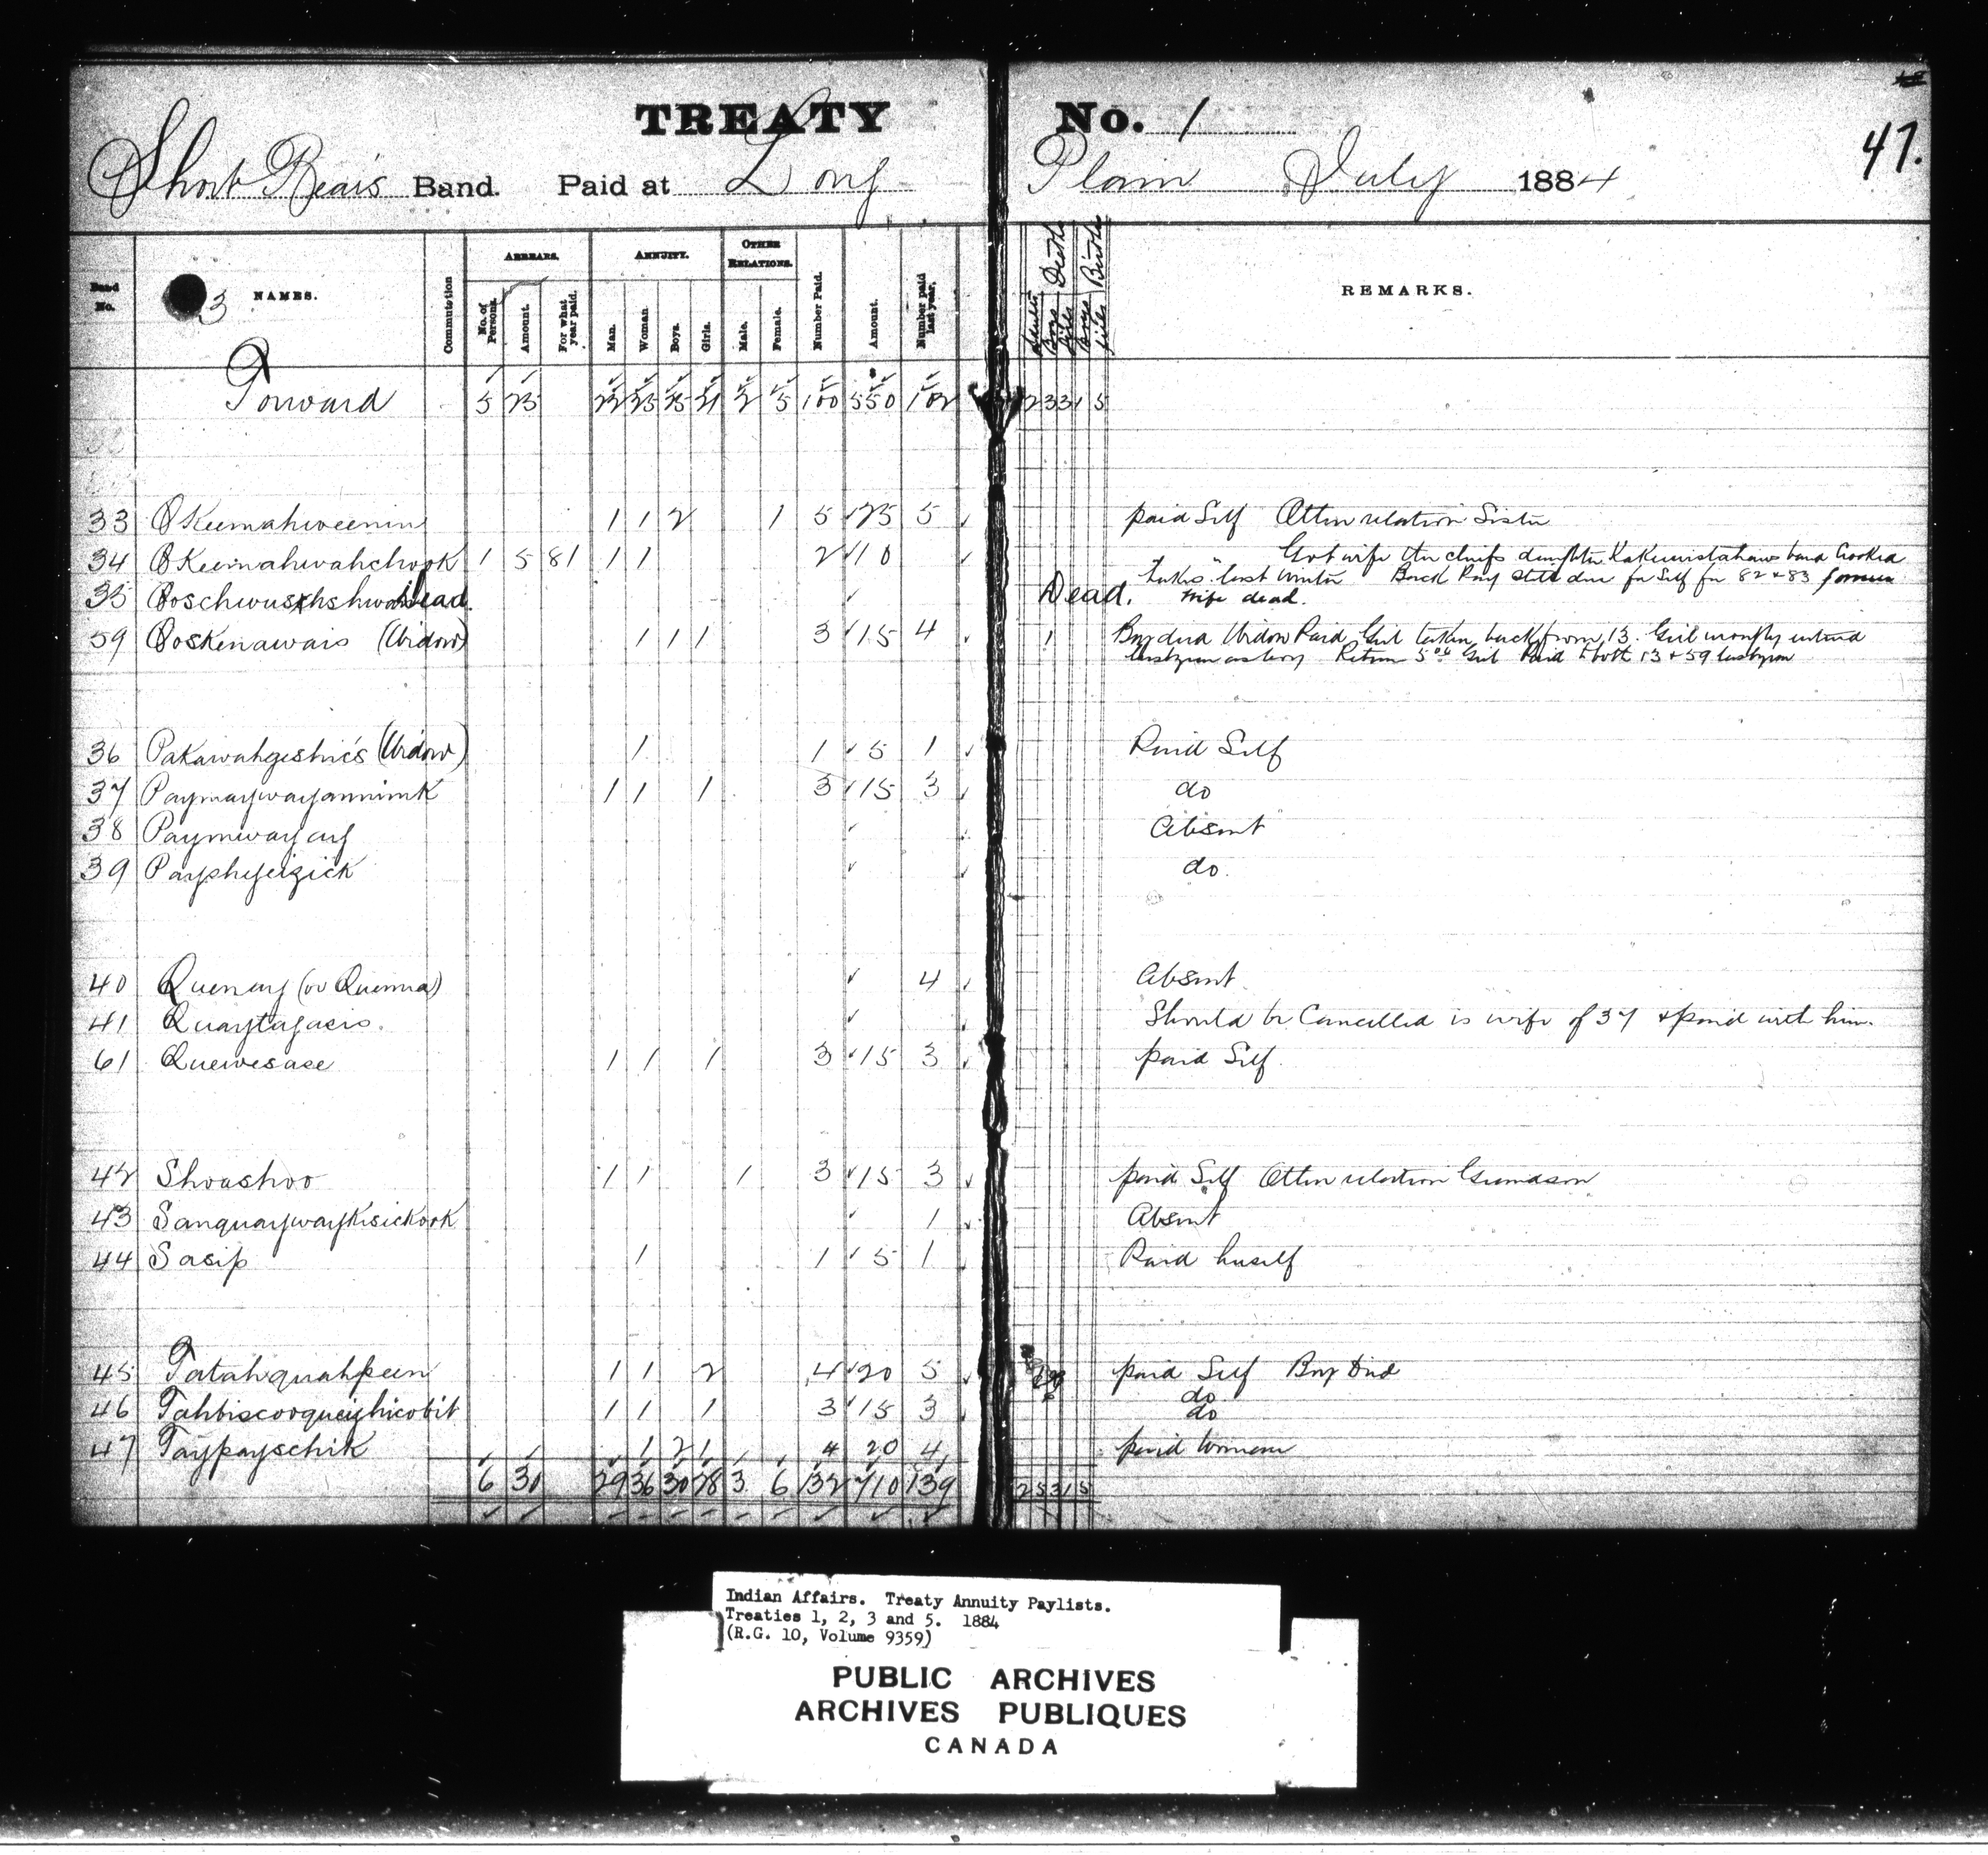 TREATY No. 1
47.
Short Bear's Band. Paid at Long Plain July 1884
Band No. NAMES. Commutation ARREARS. ANNUITY. OTHER RELATIONS. Number Paid. Amount. Number paid last year. Deaths Births REMARKS.
3
No. of Persons. Amount. For what year paid. Man. Woman Boys. Girls. Male. Female. Adults Boys Girls Boys Girls
Forward 5 25 100 550 102 2 3 3 1 5
33 OKeemahweenin 1 1 2 1 5 25 5 paid Self Other relation Sister
34 OKeemahwahchook 1 5 81 1 1 2 10 " " Got wife the chiefs daughter Kakewistahaws band Crooked
Lakes last Winter Back Pay still due for Self for 82 & 83 former
35 Dead. Dead. Wife dead.
59 Ooskenawais (Widow) 1 1 1 3 15 4 1 Boy died Widow Paid Girl taken back from 13. Girl wrongly entered
last year as boy Return 5 00 Girl Paid to both 13 & 59 last year
36 Pakawahgeshic's (Widow) 1 1 5 1 Paid Self
37 Paymaywayannimk 1 1 1 3 15 3 do
38 Paymwayay Absent
39 Payshyeizick do.
40 Quenay (or Quenna) 4 Absent
41 Quaytayacis. Should be Cancelled is wife of 37 & paid with him.
61 Quewesase 1 1 1 3 15 3 paid Self.
42 Shoashoo 1 1 1 3 15 3 paid Self Other relation Grandson
43 Sanquaywaykisickook 1 Absent
44 Sasip 1 1 5 1 Paid herself
45 Tatahquahpeen 1 1 2 4 20 5 paid Self Boy Died
46 Tahbiscooqueyhicobit 1 1 1 3 15 3 do do
47 Taypayschik 1 2 1 4 20 4 paid Woman
6 30 29 36 30 28 3 6 132 710 139 2 5 3 1 5
Indian Affairs. Treaty Annuity Paylists.
Treaties 1, 2, 3 and 5. 1884
(R.G. 10, Volume 9359)
PUBLIC ARCHIVES
ARCHIVES PUBLIQUES
CANADA